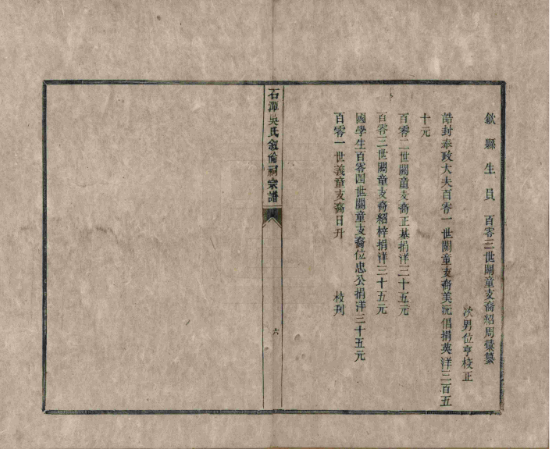 歙縣生員 百零三世關童支裔紹周彙纂
次男位亨校正
誥封奉政大夫百零一世關童支裔美沅倡捐英洋三百五
十元
百零二世關童支裔正基捐洋三十五元
百零三世關童支裔紹梓捐洋三十五元
國學生百零四世關童支裔位忠公捐洋三十五元
百零一世義童支裔日升 校刊
石潭吳氏敘倫祠宗譜
六